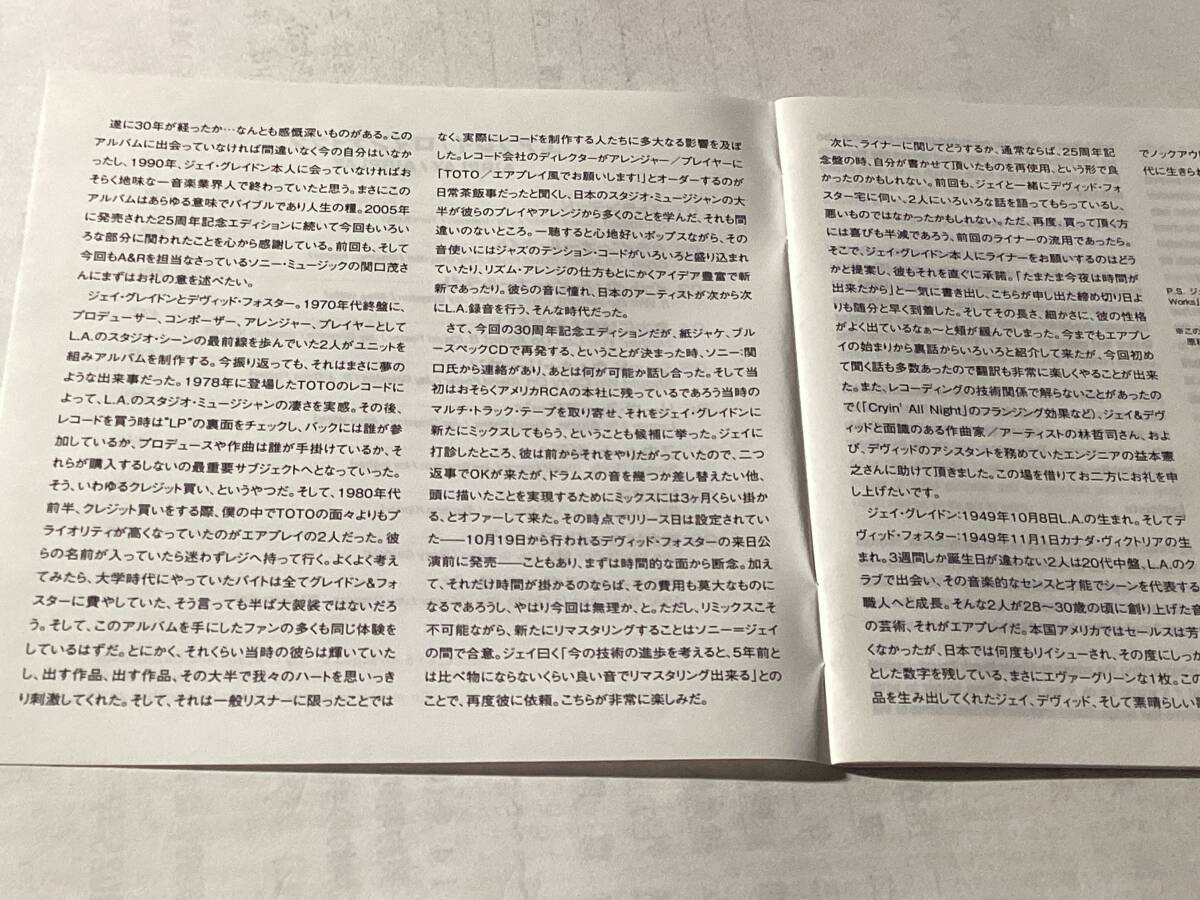 遂に30年が経ったか…なんとも感慨深いものがある。この
アルバムに出会っていなければ間違いなく今の自分はいなか
ったし、1990年、ジェイ・グレイドン本人に会っていなければお
そらく地味な一音楽業界人で終わっていたと思う。まさにこの
アルバムはあらゆる意味でバイブルであり人生の糧。2005年
に発売された25周年記念エディションに続いて今回もいろい
ろな部分に関われたことを心から感謝している。前回も、そして
今回もA&Rを担当なさっているソニー・ミュージックの関口茂さ
んにまずはお礼の意を述べたい。
ジェイ・グレイドンとデヴィッド・フォスター。1970年代終盤に、
プロデューサー、コンポーザー、アレンジャー、プレイヤーとして
L.A.のスタジオ・シーンの最前線を歩んでいた2人がユニットを
組みアルバムを制作する。今振り返っても、それはまさに夢の
ような出来事だった。1978年に登場したTOTOのレコードに
よって、L.A.のスタジオ・ミュージシャンの凄さを実感。その後、
レコードを買う時は“LP”の裏面をチェックし、バックには誰が参
加しているか、プロデュースや作曲は誰が手掛けているか、そ
れらが購入するしないの最重要サブジェクトへとなっていった。
そう、いわゆるクレジット買い、というやつだ。そして、1980年代
前半、クレジット買いをする際、僕の中でTOTOの面々よりもプ
ライオリティが高くなっていたのがエアプレイの2人だった。彼
らの名前が入っていたら迷わずレジへ持って行く。よくよく考え
てみたら、大学時代にやっていたバイトは全てグレイドン&フォ
スターに費やしていた、そう言っても半ば大袈裟ではないだろ
う。そして、このアルバムを手にしたファンの多くも同じ体験を
しているはずだ。とにかく、それくらい当時の彼らは輝いていた
し、出す作品、出す作品、その大半で我々のハートを思いっき
り刺激してくれた。そして、それは一般リスナーに限ったことでは
なく、実際にレコードを制作する人たちに多大なる影響を及ぼ
した。レコード会社のディレクターがアレンジャー／プレイヤーに
「TOTO／エアプレイ風でお願いします!」とオーダーするのが
日常茶飯事だったと聞くし、日本のスタジオ・ミュージシャンの大
半が彼らのプレイやアレンジから多くのことを学んだ、それも間
違いのないところ。一聴すると心地好いポップスながら、その
音使いにはジャズのテンション・コードがいろいろと盛り込まれ
ていたり、リズム・アレンジの仕方もとにかくアイデア豊富で斬
新であったり。彼らの音に憧れ、日本のアーティストが次から次
にL.A.録音を行う、そんな時代だった。
さて、今回の30周年記念エディションだが、紙ジャケ、ブルー
スペックCDで再発する、ということが決まった時、ソニー:関
口氏から連絡があり、あとは何が可能か話し合った。そして当
初はおそらくアメリカRCAの本社に残っているであろう当時の
マルチ・トラック・テープを取り寄せ、それをジェイ・グレイドンに
新たにミックスしてもらう、ということも候補に挙った。ジェイに
打診したところ、彼は前からそれをやりたがっていたので、二つ
返事でOKが来たが、ドラムスの音を幾つか差し替えたい他、
頭に描いたことを実現するためにミックスには3ヶ月くらい掛か
る、とオファーして来た。その時点でリリース日は設定されてい
た――10月19日から行われるデヴィッド・フォスターの来日公
演前に発売――こともあり、まずは時間的な面から断念。加え
て、それだけ時間が掛かるのならば、その費用も莫大なものに
なるであろうし、やはり今回は無理か、と。ただし、リミックスこそ
不可能ながら、新たにリマスタリングすることはソニー＝ジェイ
の間で合意。ジェイ曰く「今の技術の進歩を考えると、5年前と
は比べ物にならないくらい良い音でリマスタリング出来る」との
ことで、再度彼に依頼。こちらが非常に楽しみだ。
次に、ライナーに関してどうするか、通常ならば、25周年記
念盤の時、自分が書かせて頂いたものを再使用、という形で良
かったのかもしれない。前回も、ジェイと一緒にデヴィッド・フォ
スター宅に伺い、2人にいろいろな話を語ってもらっているし、
悪いものではなかったかもしれない。ただ、再度、買って頂く方
には喜びも半減であろう、前回のライナーの流用であったら。
そこで、ジェイ・グレイドン本人にライナーをお願いするのはどう
かと提案し、彼もそれを直ぐに承諾。「たまたま今夜は時間が
出来たから」と一気に書き出し、こちらが申し出た締め切り日よ
りも随分と早く到着した。そしてその長さ、細かさに、彼の性格
がよく出ているなぁ～と頬が緩んでしまった。今までもエアプレ
イの始まりから裏話からいろいろと紹介して来たが、今回初め
て聞く話も多数あったので翻訳も非常に楽しくやることが出来
た。また、レコーディングの技術関係で解らないことがあったの
で(「Cryin' All Night」のフランジング効果など)、ジェイ&デヴ
ィッドと面識のある作曲家／アーティストの林哲司さん、およ
び、デヴィッドのアシスタントを務めていたエンジニアの益本憲
之さんに助けて頂きました。この場を借りてお二方にお礼を申
し上げたいです。
ジェイ・グレイドン:1949年10月8日L.A.の生まれ。そしてデ
ヴィッド・フォスター:1949年11月1日カナダ・ヴィクトリアの生
まれ。3週間しか誕生日が違わない2人は20代中盤、L.A.のク
ラブで出会い、その音楽的なセンスと才能でシーンを代表する
職人へと成長。そんな2人が28～30歳の頃に創り上げた音
の芸術、それがエアプレイだ。本国アメリカではセールスは芳
くなかったが、日本では何度もリイシューされ、その度にしっか
とした数字を残している、まさにエヴァーグリーンな1枚。この
品を生み出してくれたジェイ、デヴィッド、そして素晴らしい
でノックアウ
代に生きられ
P.S. ジ
Works」
※この
原稿